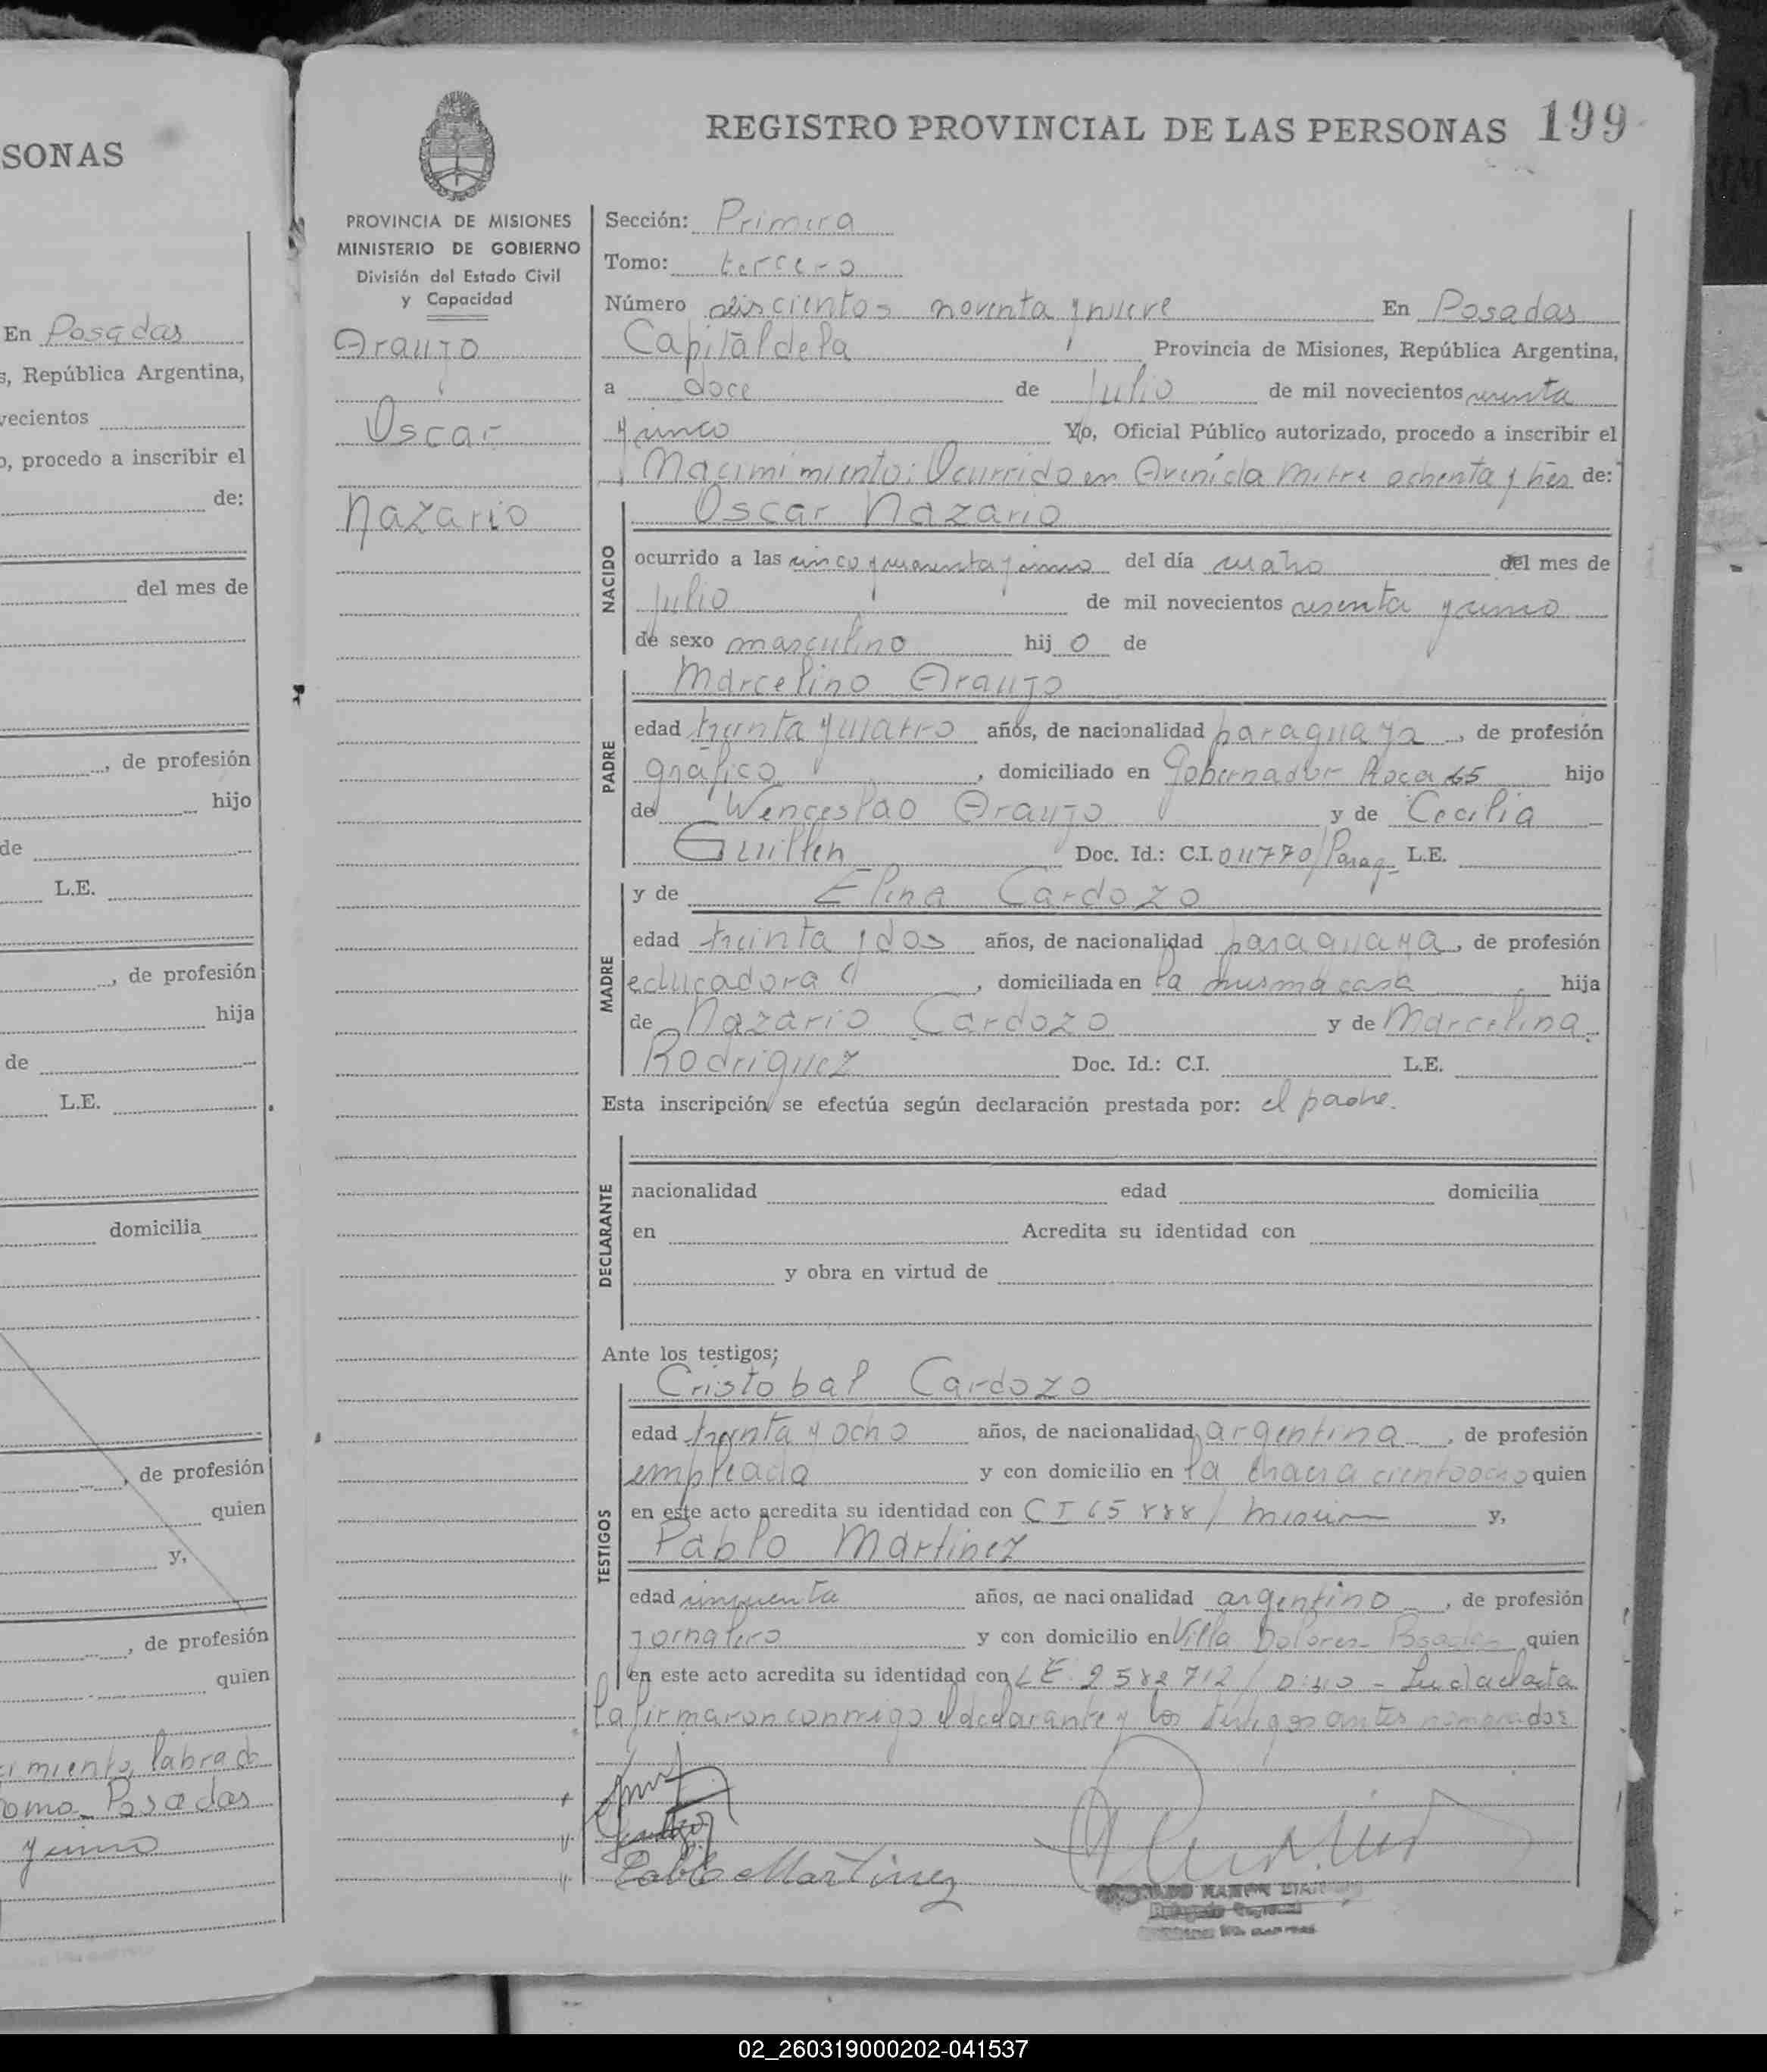 SONAS
En Posadas
s, República Argentina,
vecientos
o, procedo a inscribir el
de:
del mes de
, de profesión
hijo
de
L.E.
, de profesión
hija
de
L.E.
domicilia
, de profesión
quien
y,
, de profesión
quien
imiento labrado
Posadas
REGISTRO PROVINCIAL DE LAS PERSONAS 199
PROVINCIA DE MISIONES
MINISTERIO DE GOBIERNO
División del Estado Civil
y Capacidad
Araujo
Oscar
Nazario
Sección: Primera
Tomo: tercero
Número seiscientos noventa y nueve En Posadas
Capital de la Provincia de Misiones, República Argentina,
a doce de Julio de mil novecientos sesenta
y cinco Yo, Oficial Público autorizado, procedo a inscribir el
Nacimimiento: Ocurrido en Avenida Mitre ochenta y tres de:
NACIDO
Oscar Nazario
ocurrido a las cinco y cuarenta y cinco del día cuatro del mes de
Julio de mil novecientos sesenta y cinco
de sexo masculino hijo de
PADRE
Marcelino Araujo
edad treinta y cuatro años, de nacionalidad paraguaya, de profesión
gráfico, domiciliado en Gobernador Roca 65 hijo
de Wenceslao Araujo y de Cecilia
Guillen Doc. Id.: C.I. 011770/Parag. L.E.
MADRE
y de Elina Cardozo
edad treinta y dos años, de nacionalidad paraguaya, de profesión
educadora, domiciliada en la misma casa hija
de Nazario Cardozo y de Marcelina
Rodriguez Doc. Id.: C.I. L.E.
Esta inscripción se efectúa según declaración prestada por: el padre.
DECLARANTE
nacionalidad edad domicilia
en Acredita su identidad con
y obra en virtud de
Ante los testigos;
TESTIGOS
Cristobal Cardozo
edad treinta y ocho años, de nacionalidad argentina, de profesión
empleado y con domicilio en la chacra ciento ocho quien
en este acto acredita su identidad con CI 65888/ y,
Pablo Martinez
edad cincuenta años, de nacionalidad argentino, de profesión
jornalero y con domicilio en Villa Dolores - Posadas quien
en este acto acredita su identidad con LE 2582712/ - Leida el acta
la firmaron conmigo el declarante y los testigos antes nombrados
Pablo Martinez
RAMON
02_260319000202-041537